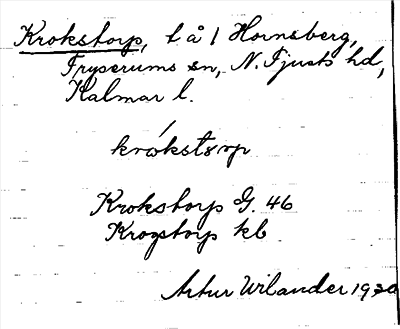 Krokstorp, t å 1 Hornsberg,
Fryserums sn, N. Tjusts hd,
Kalmar l.
krókstørp
Krokstorp G. 46
Krogstorp kb
Artur Wilander 1930